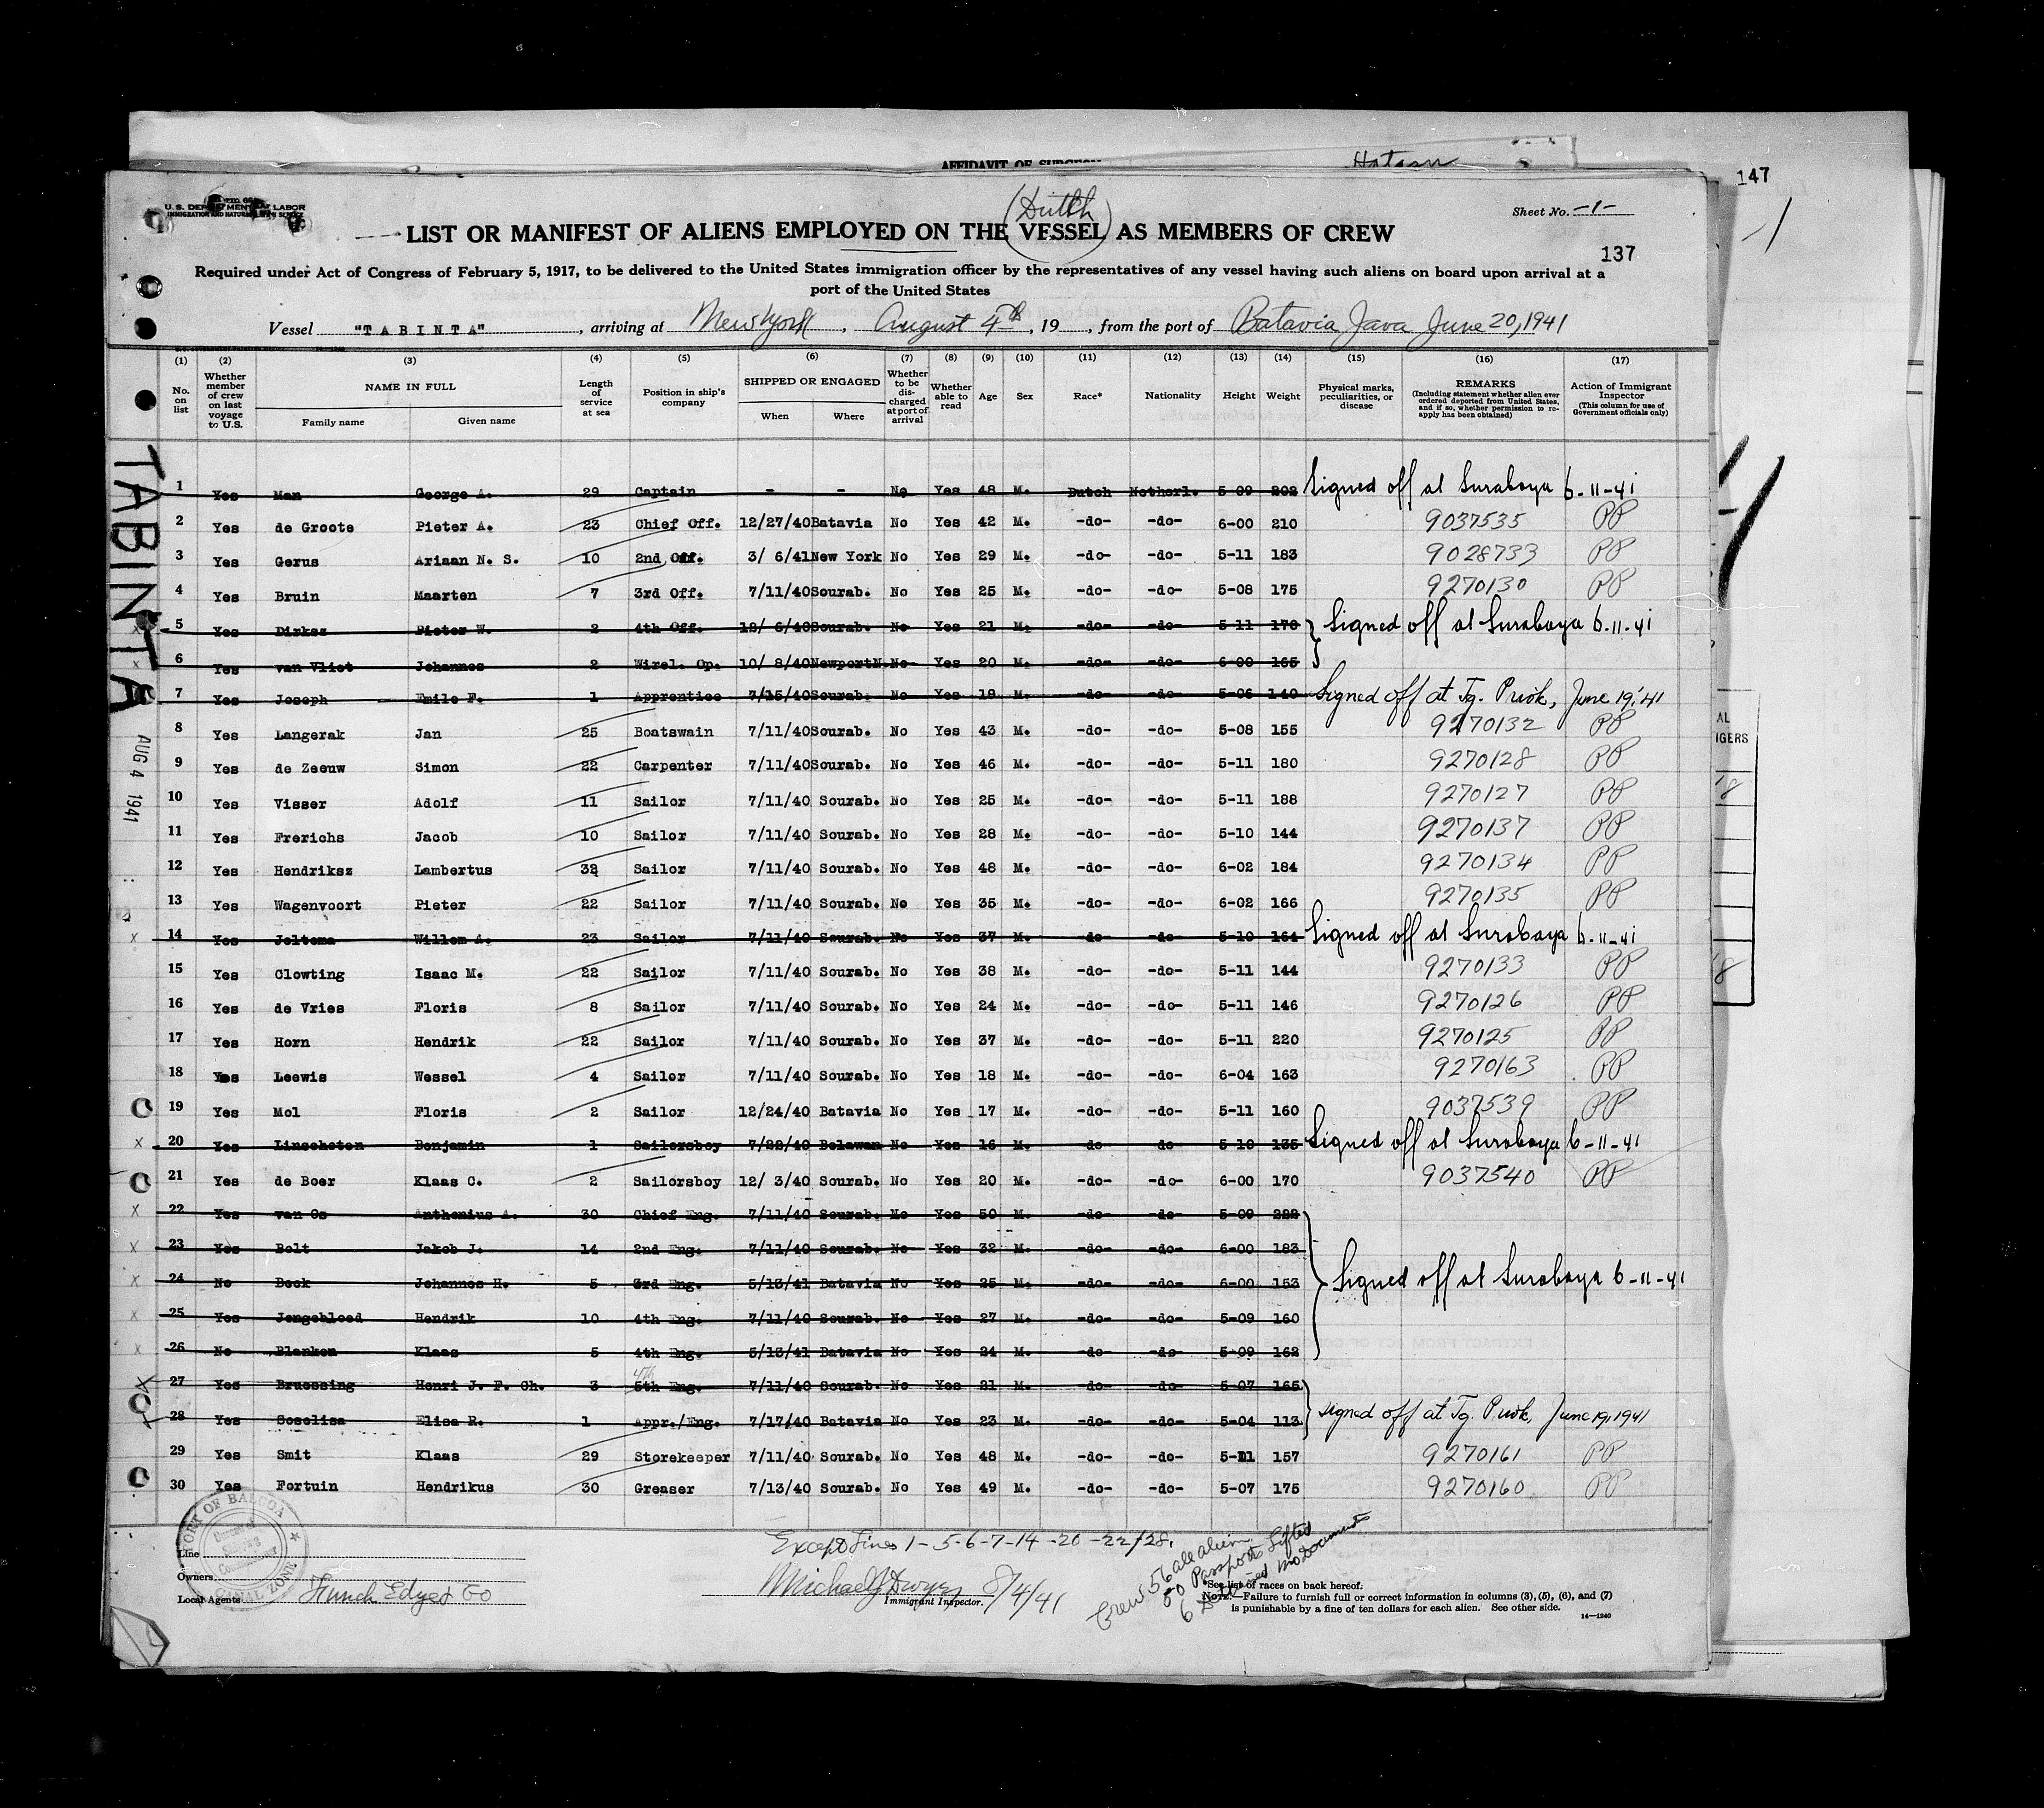 AFFIDAVIT OF SURGEON
147
U.S. DEPARTMENT OF LABOR
IMMIGRATION AND NATURALIZATION SERVICE
(Dutch)
Sheet No. -1-
LIST OR MANIFEST OF ALIENS EMPLOYED ON THE VESSEL AS MEMBERS OF CREW
137
Required under Act of Congress of February 5, 1917, to be delivered to the United States immigration officer by the representatives of any vessel having such aliens on board upon arrival at a
port of the United States
Vessel "TABINTA", arriving at New York, August 4th, 19 , from the port of Batavia Java June 20, 1941
(1) (2) (3) (4) (5) (6) (7) (8) (9) (10) (11) (12) (13) (14) (15) (16) (17)
No. on list
Whether member of crew on last voyage to U.S.
NAME IN FULL
Family name Given name
Length of service at sea
Position in ship's company
SHIPPED OR ENGAGED
When Where
Whether to be discharged at port of arrival
Whether able to read
Age Sex Race* Nationality Height Weight
Physical marks, peculiarities, or disease
REMARKS
(Including statement whether alien ever ordered deported from United States, and if so, whether permission to reapply has been obtained)
Action of Immigrant Inspector
(This column for use of Government officials only)
TABINTA
AUG 4 1941
1 Yes Man George A. 29 Captain - - No Yes 48 M. Dutch Netherl. 5-09 202 Signed off at Surabaya 6-11-41
2 Yes de Groote Pieter A. 23 Chief Off. 12/27/40 Batavia No Yes 42 M. -do- -do- 6-00 210 9037535 PP
3 Yes Gerus Ariaan N. S. 10 2nd Off. 3/ 6/41 New York No Yes 29 M. -do- -do- 5-11 183 9028733 PP
4 Yes Bruin Maarten 7 3rd Off. 7/11/40 Sourab. No Yes 25 M. -do- -do- 5-08 175 9270130 PP
5 Yes Dirksz Pieter W. 2 4th Off. 12/ 6/40 Sourab. No Yes 21 M. -do- -do- 5-11 170 Signed off at Surabaya 6-11-41
6 Yes van Vliet Johannes 2 Wirel. Op. 10/ 8/40 NewportN. No Yes 20 M. -do- -do- 6-00 165
7 Yes Joseph Emile F. 1 Apprentice 7/15/40 Sourab. No Yes 19 M. -do- -do- 5-06 140 Signed off at Tg. Priok, June 19,'41
8 Yes Langerak Jan 25 Boatswain 7/11/40 Sourab. No Yes 43 M. -do- -do- 5-08 155 9270132 PP
9 Yes de Zeeuw Simon 22 Carpenter 7/11/40 Sourab. No Yes 46 M. -do- -do- 5-11 180 9270128 PP
10 Yes Visser Adolf 11 Sailor 7/11/40 Sourab. No Yes 25 M. -do- -do- 5-11 188 9270127 PP
11 Yes Frerichs Jacob 10 Sailor 7/11/40 Sourab. No Yes 28 M. -do- -do- 5-10 144 9270137 PP
12 Yes Hendriksz Lambertus 32 Sailor 7/11/40 Sourab. No Yes 48 M. -do- -do- 6-02 184 9270134 PP
13 Yes Wagenvoort Pieter 22 Sailor 7/11/40 Sourab. No Yes 35 M. -do- -do- 6-02 166 9270135 PP
14 Yes Jeltema Willem A. 23 Sailor 7/11/40 Sourab. No Yes 37 M. -do- -do- 5-10 164 Signed off at Surabaya 6-11-41
15 Yes Clowting Isaac M. 22 Sailor 7/11/40 Sourab. No Yes 38 M. -do- -do- 5-11 144 9270133 PP
16 Yes de Vries Floris 8 Sailor 7/11/40 Sourab. No Yes 24 M. -do- -do- 5-11 146 9270126 PP
17 Yes Horn Hendrik 22 Sailor 7/11/40 Sourab. No Yes 37 M. -do- -do- 5-11 220 9270125 PP
18 Yes Leewis Wessel 4 Sailor 7/11/40 Sourab. No Yes 18 M. -do- -do- 6-04 163 9270163 PP
19 Yes Mol Floris 2 Sailor 12/24/40 Batavia No Yes 17 M. -do- -do- 5-11 160 9037539 PP
20 Yes Linschoten Benjamin 1 Sailorsboy 7/22/40 Belawan No Yes 16 M. -do- -do- 5-10 135 Signed off at Surabaya 6-11-41
21 Yes de Boer Klaas C. 2 Sailorsboy 12/ 3/40 Sourab. No Yes 20 M. -do- -do- 6-00 170 9037540 PP
22 Yes van Os Anthonius A. 30 Chief Eng. 7/11/40 Sourab. No Yes 50 M. -do- -do- 5-09 222
23 Yes Bolt Jakob J. 14 2nd Eng. 7/11/40 Sourab. No Yes 32 M. -do- -do- 6-00 183
24 No Beck Johannes H. 5 3rd Eng. 5/13/41 Batavia No Yes 25 M. -do- -do- 6-00 153 Signed off at Surabaya 6-11-41
25 Yes Jongebloed Hendrik 10 4th Eng. 7/11/40 Sourab. No Yes 27 M. -do- -do- 5-09 160
26 No Blanken Klaas 5 4th Eng. 5/13/41 Batavia No Yes 24 M. -do- -do- 5-09 162
27 Yes Bruessing Henri J. F. Ch. 3 5th Eng. 4th 7/11/40 Sourab. No Yes 21 M. -do- -do- 5-07 165
28 Yes Soselisa Elisa R. 1 Appr./Eng. 7/17/40 Batavia No Yes 23 M. -do- -do- 5-04 113 signed off at Tg. Priok, June 19, 1941
29 Yes Smit Klaas 29 Storekeeper 7/11/40 Sourab. No Yes 48 M. -do- -do- 5-11 157 9270161 PP
30 Yes Fortuin Hendrikus 30 Greaser 7/13/40 Sourab. No Yes 49 M. -do- -do- 5-07 175 9270160 PP
PORT OF BALBOA
CANAL ZONE
Except Lines 1-5-6-7-14-20-22/28.
Line
Owners
Local Agents Funch Edye & Co
Michael J Dwyer 8/4/41
Immigrant Inspector.
Crew 56 all aliens
50 Passports Lifted
6 no Documents
*See list of races on back hereof.
NOTE.—Failure to furnish full or correct information in columns (3), (5), (6), and (7)
is punishable by a fine of ten dollars for each alien. See other side.
14—1240